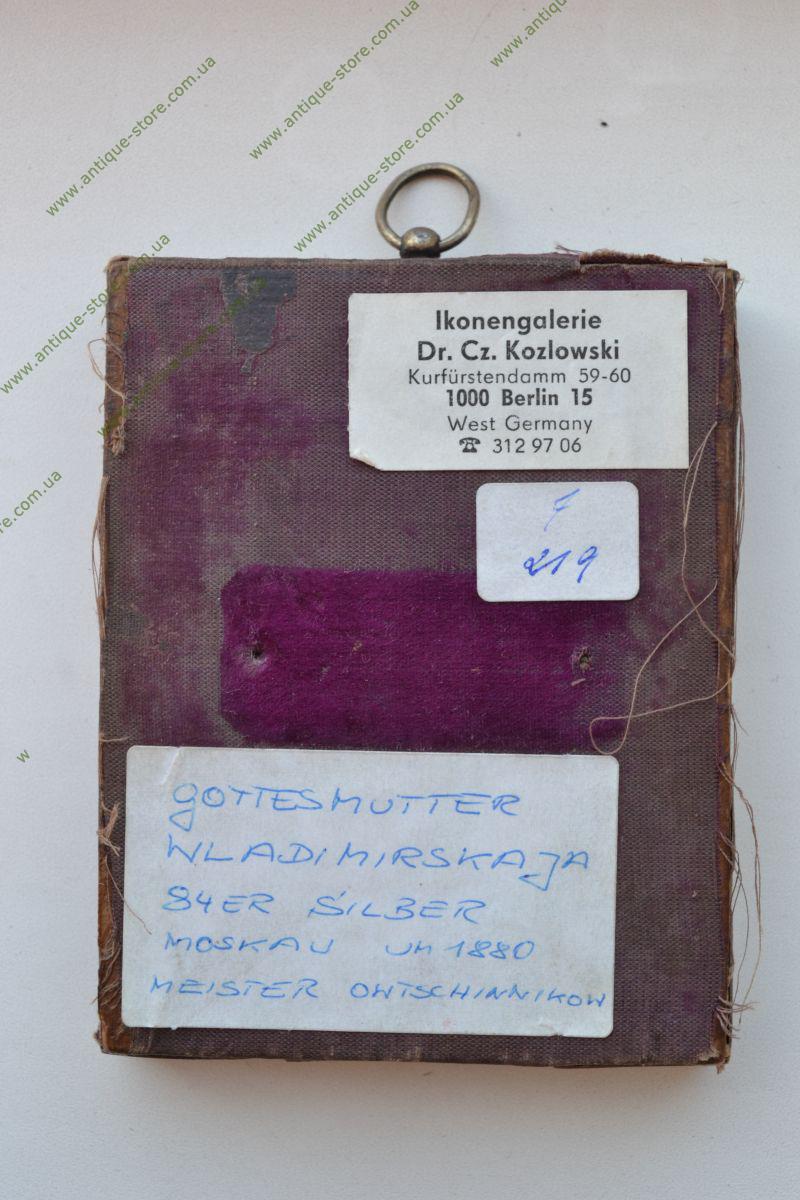 www.antique-store.com.ua
www.antique-store.com.ua
www.antique-store.com.ua
www.antique-store.com.ua
www.antique-store.com.ua
Ikonengalerie
Dr. Cz. Kozlowski
Kurfürstendamm 59-60
1000 Berlin 15
West Germany
☎ 312 97 06
219
GOTTESMUTTER
WLADIMIRSKAJA
84ER SILBER
MOSKAU UM 1880
MEISTER OWTSCHINNIKOW